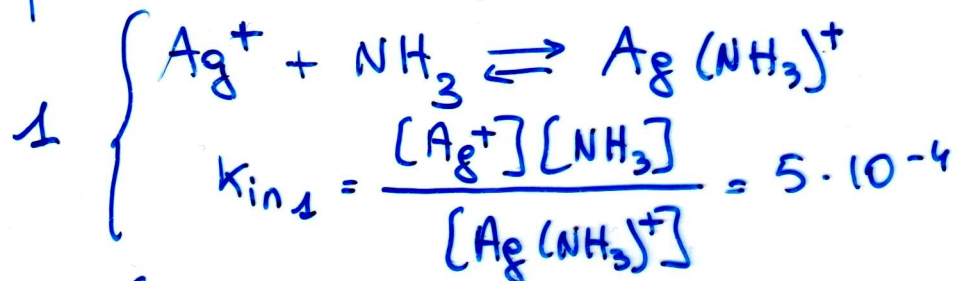 1 { Ag⁺ + NH₃ ⇌ Ag (NH₃)⁺
Kin₁ = [Ag⁺][NH₃] / [Ag (NH₃)⁺] = 5·10⁻⁴